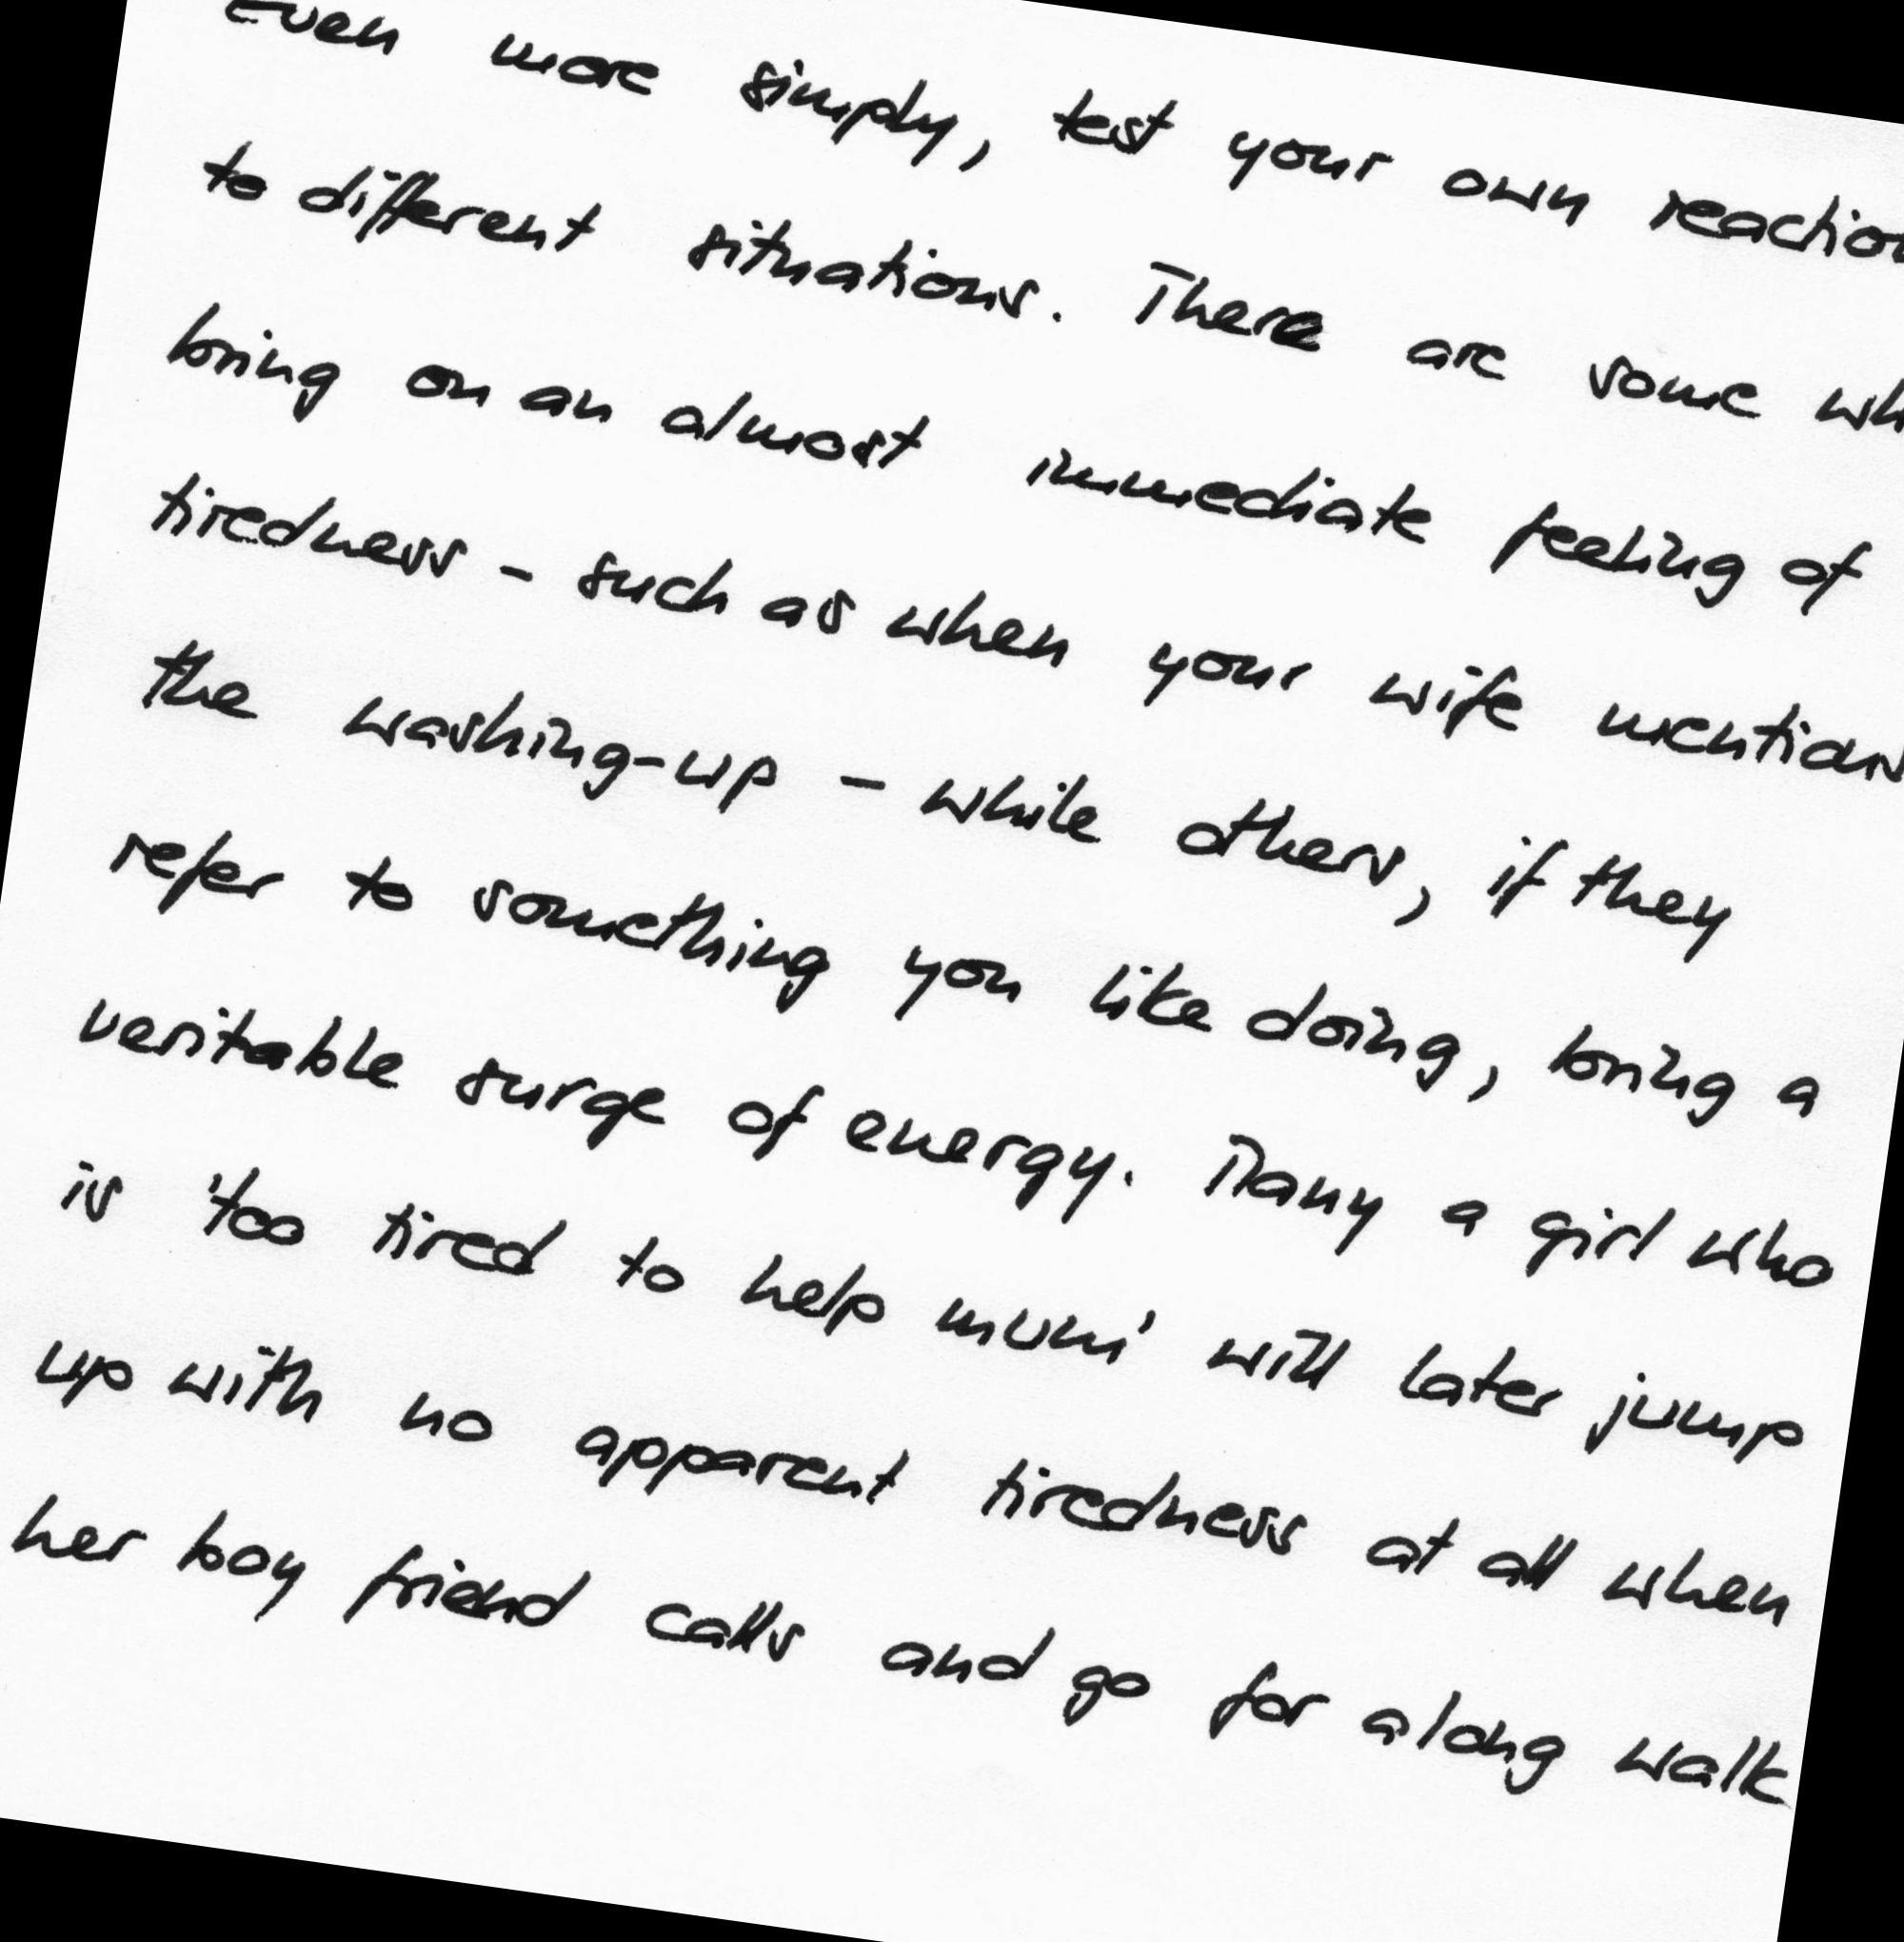 Even more simply, test your own reaction
to different situations. There are some wh
bring on an almost immediate feeling of
tiredness - such as when your wife mentions
the washing-up - while others, if they
refer to something you like doing, bring a
veritable surge of energy. Many a girl who
is 'too tired to help mum' will later jump
up with no apparent tiredness at all when
her boy friend calls and go for a long walk